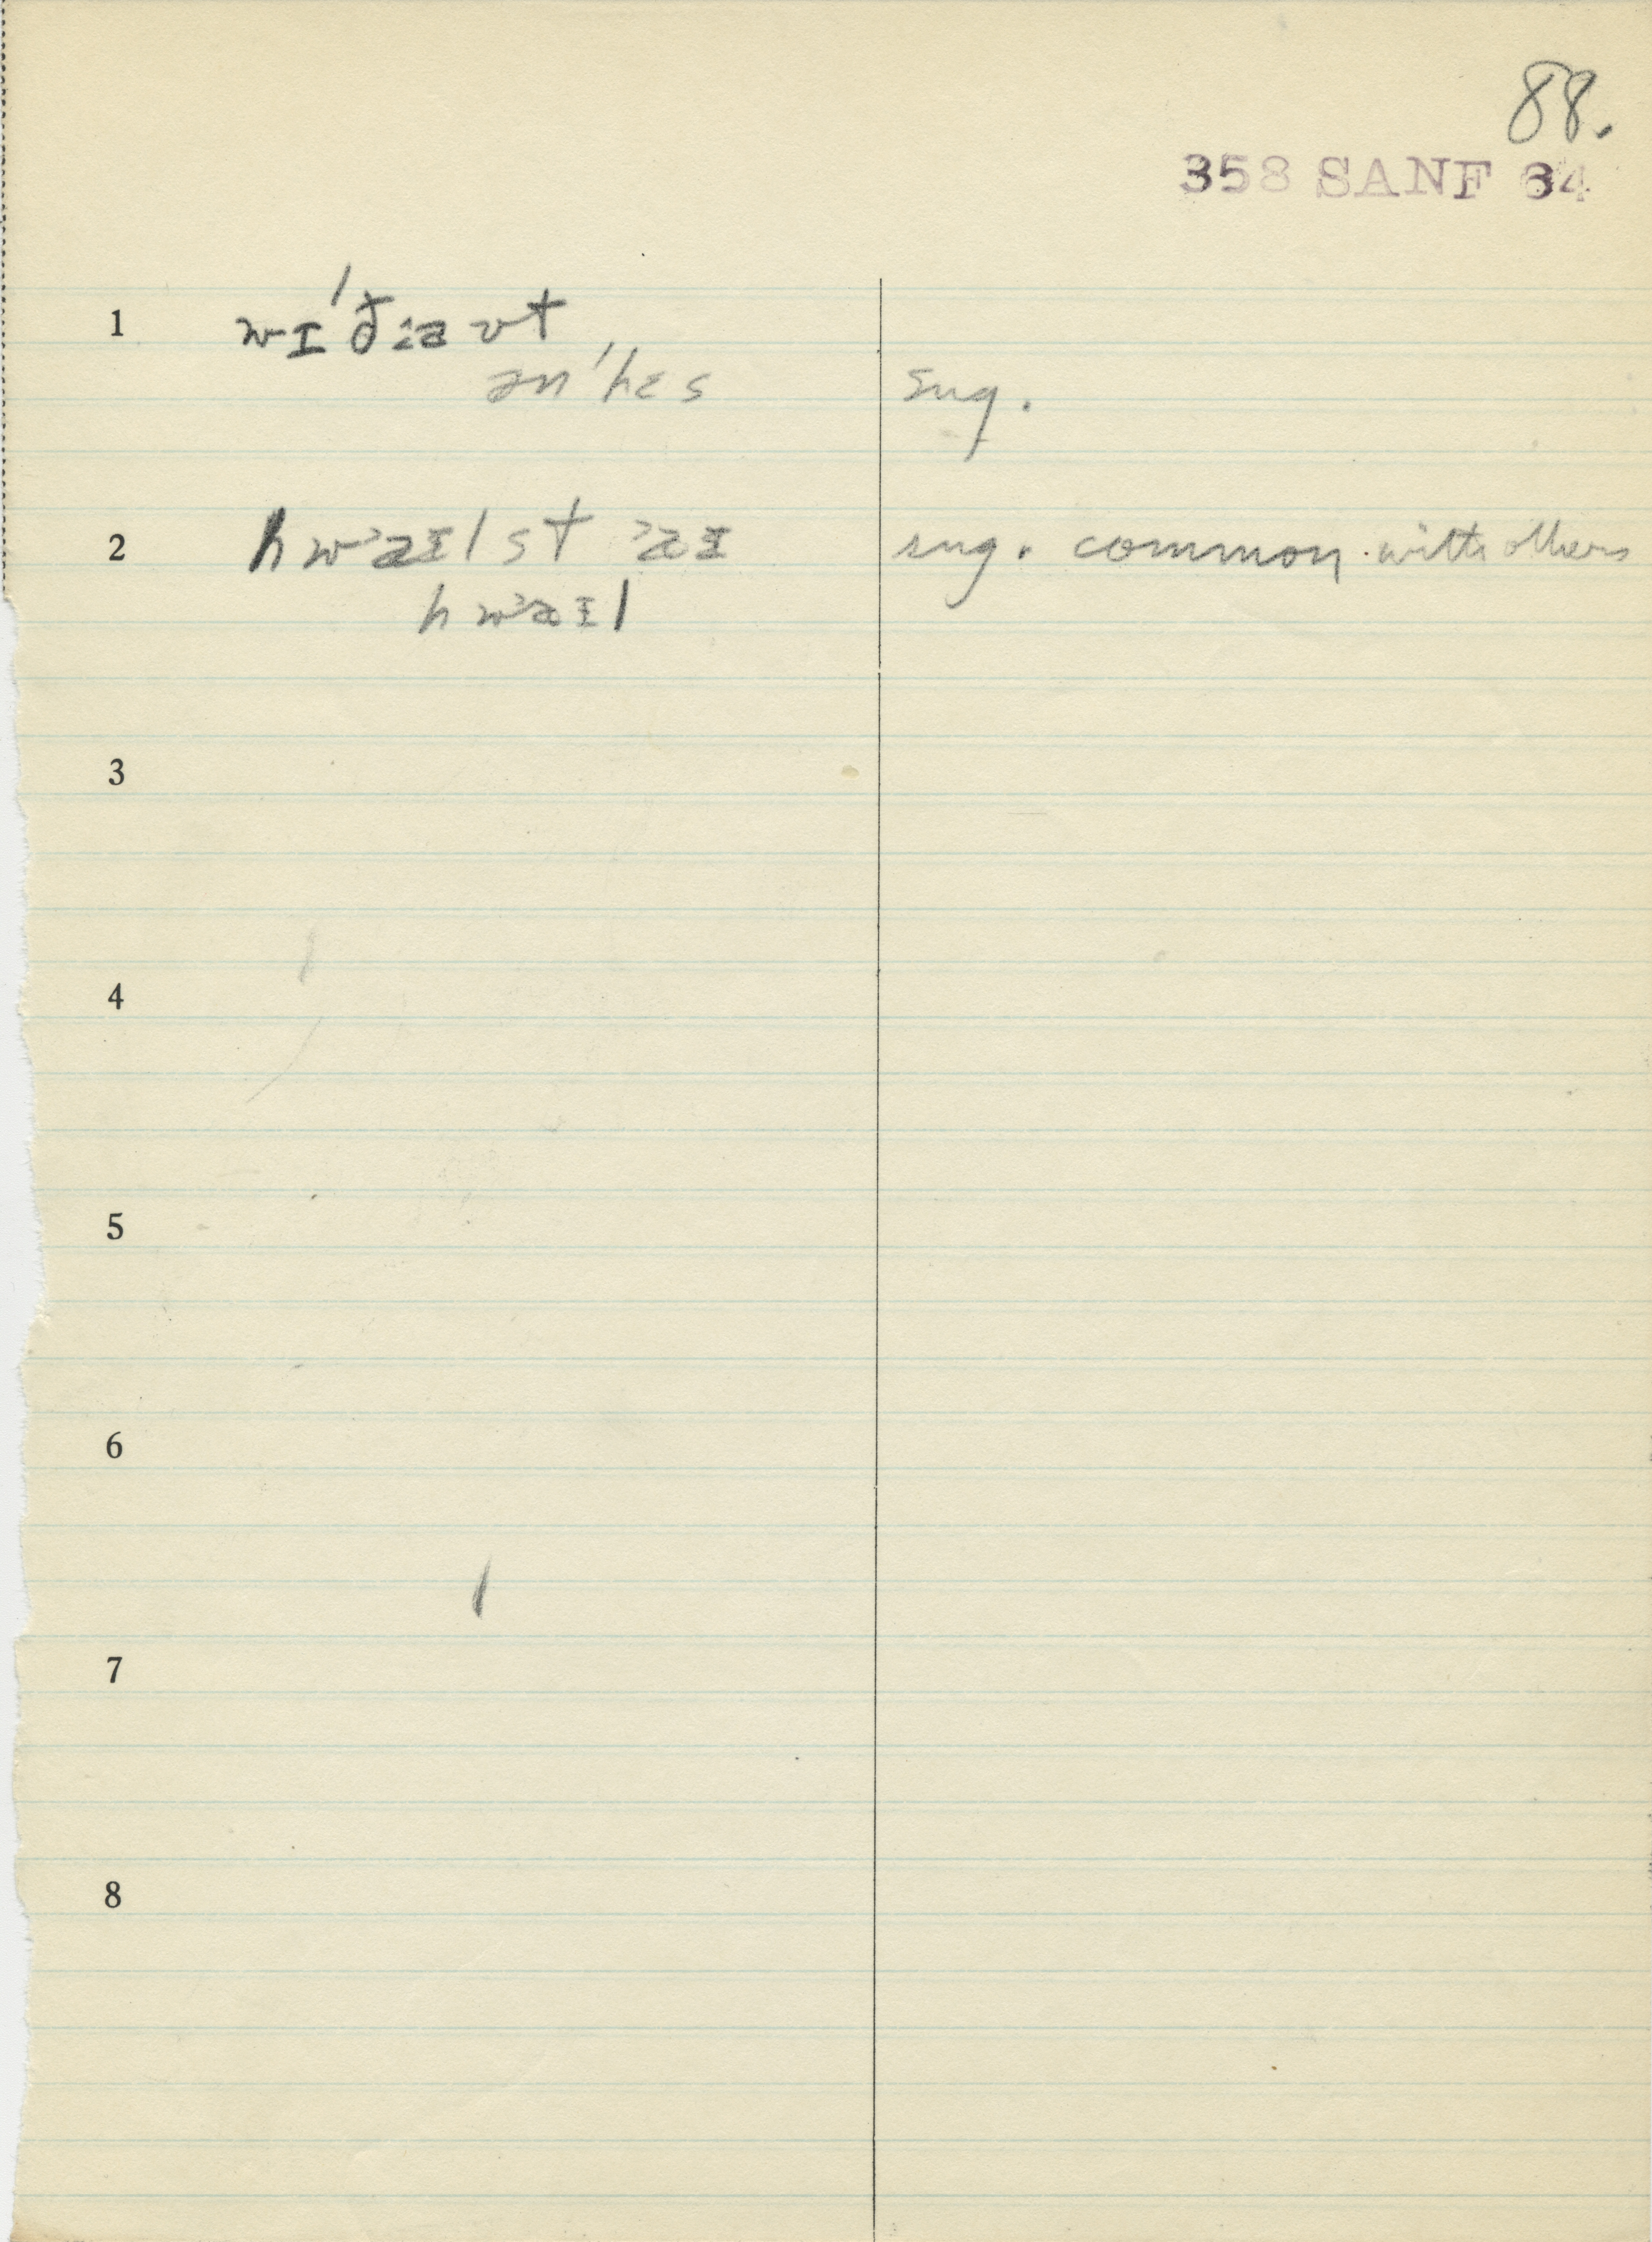 88.
358 SANF 34
1 wɪ'ðːa ʊt
ən'hɛs sug.
2 hwaɪlst aɪ sug. common with others
hwaɪl
3
4
5
6
7
8